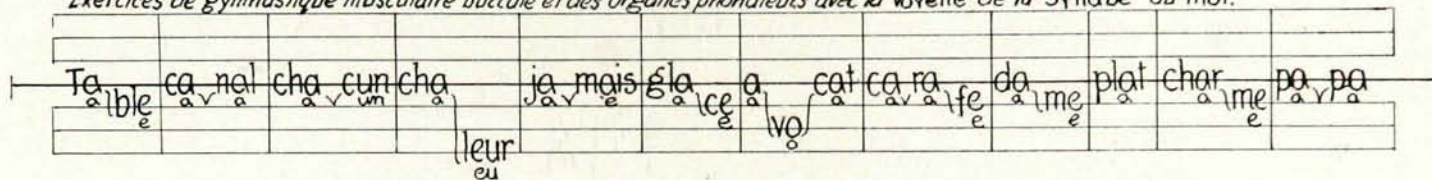 Exercices de gymnastique musculaire buccale et des organes phonateurs avec la voyelle de la Syllabe ou mot.
Ta ble ca nal cha cun cha leur ja mais gla ce a vo cat ca ra fe da me plat char me pa pa
a e a a a un a eu a e a e a o a a a e a e a a e a a